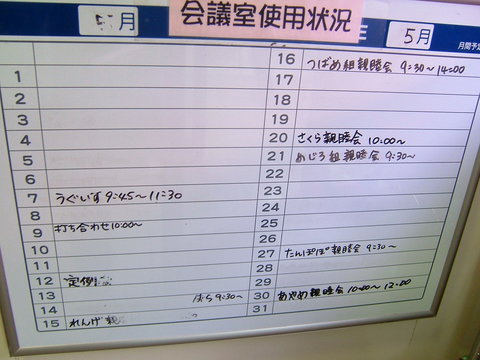 会議室使用状況
5月
5月
月間予定
1
2
3
4
5
6
7 うぐいす 9:45〜11:30
8
9 打ち合わせ 10:00〜
10
11
12 定例
13 ばら 9:30〜
14
15 れんげ 親
16 つばめ組親睦会 9:30〜14:00
17
18
19
20 さくら親睦会 10:00〜
21 めじろ組親睦会 9:30〜
22
23
24
25
26
27 たんぽぽ親睦会 9:30〜
28
29
30 あやめ親睦会 10:00〜12:00
31